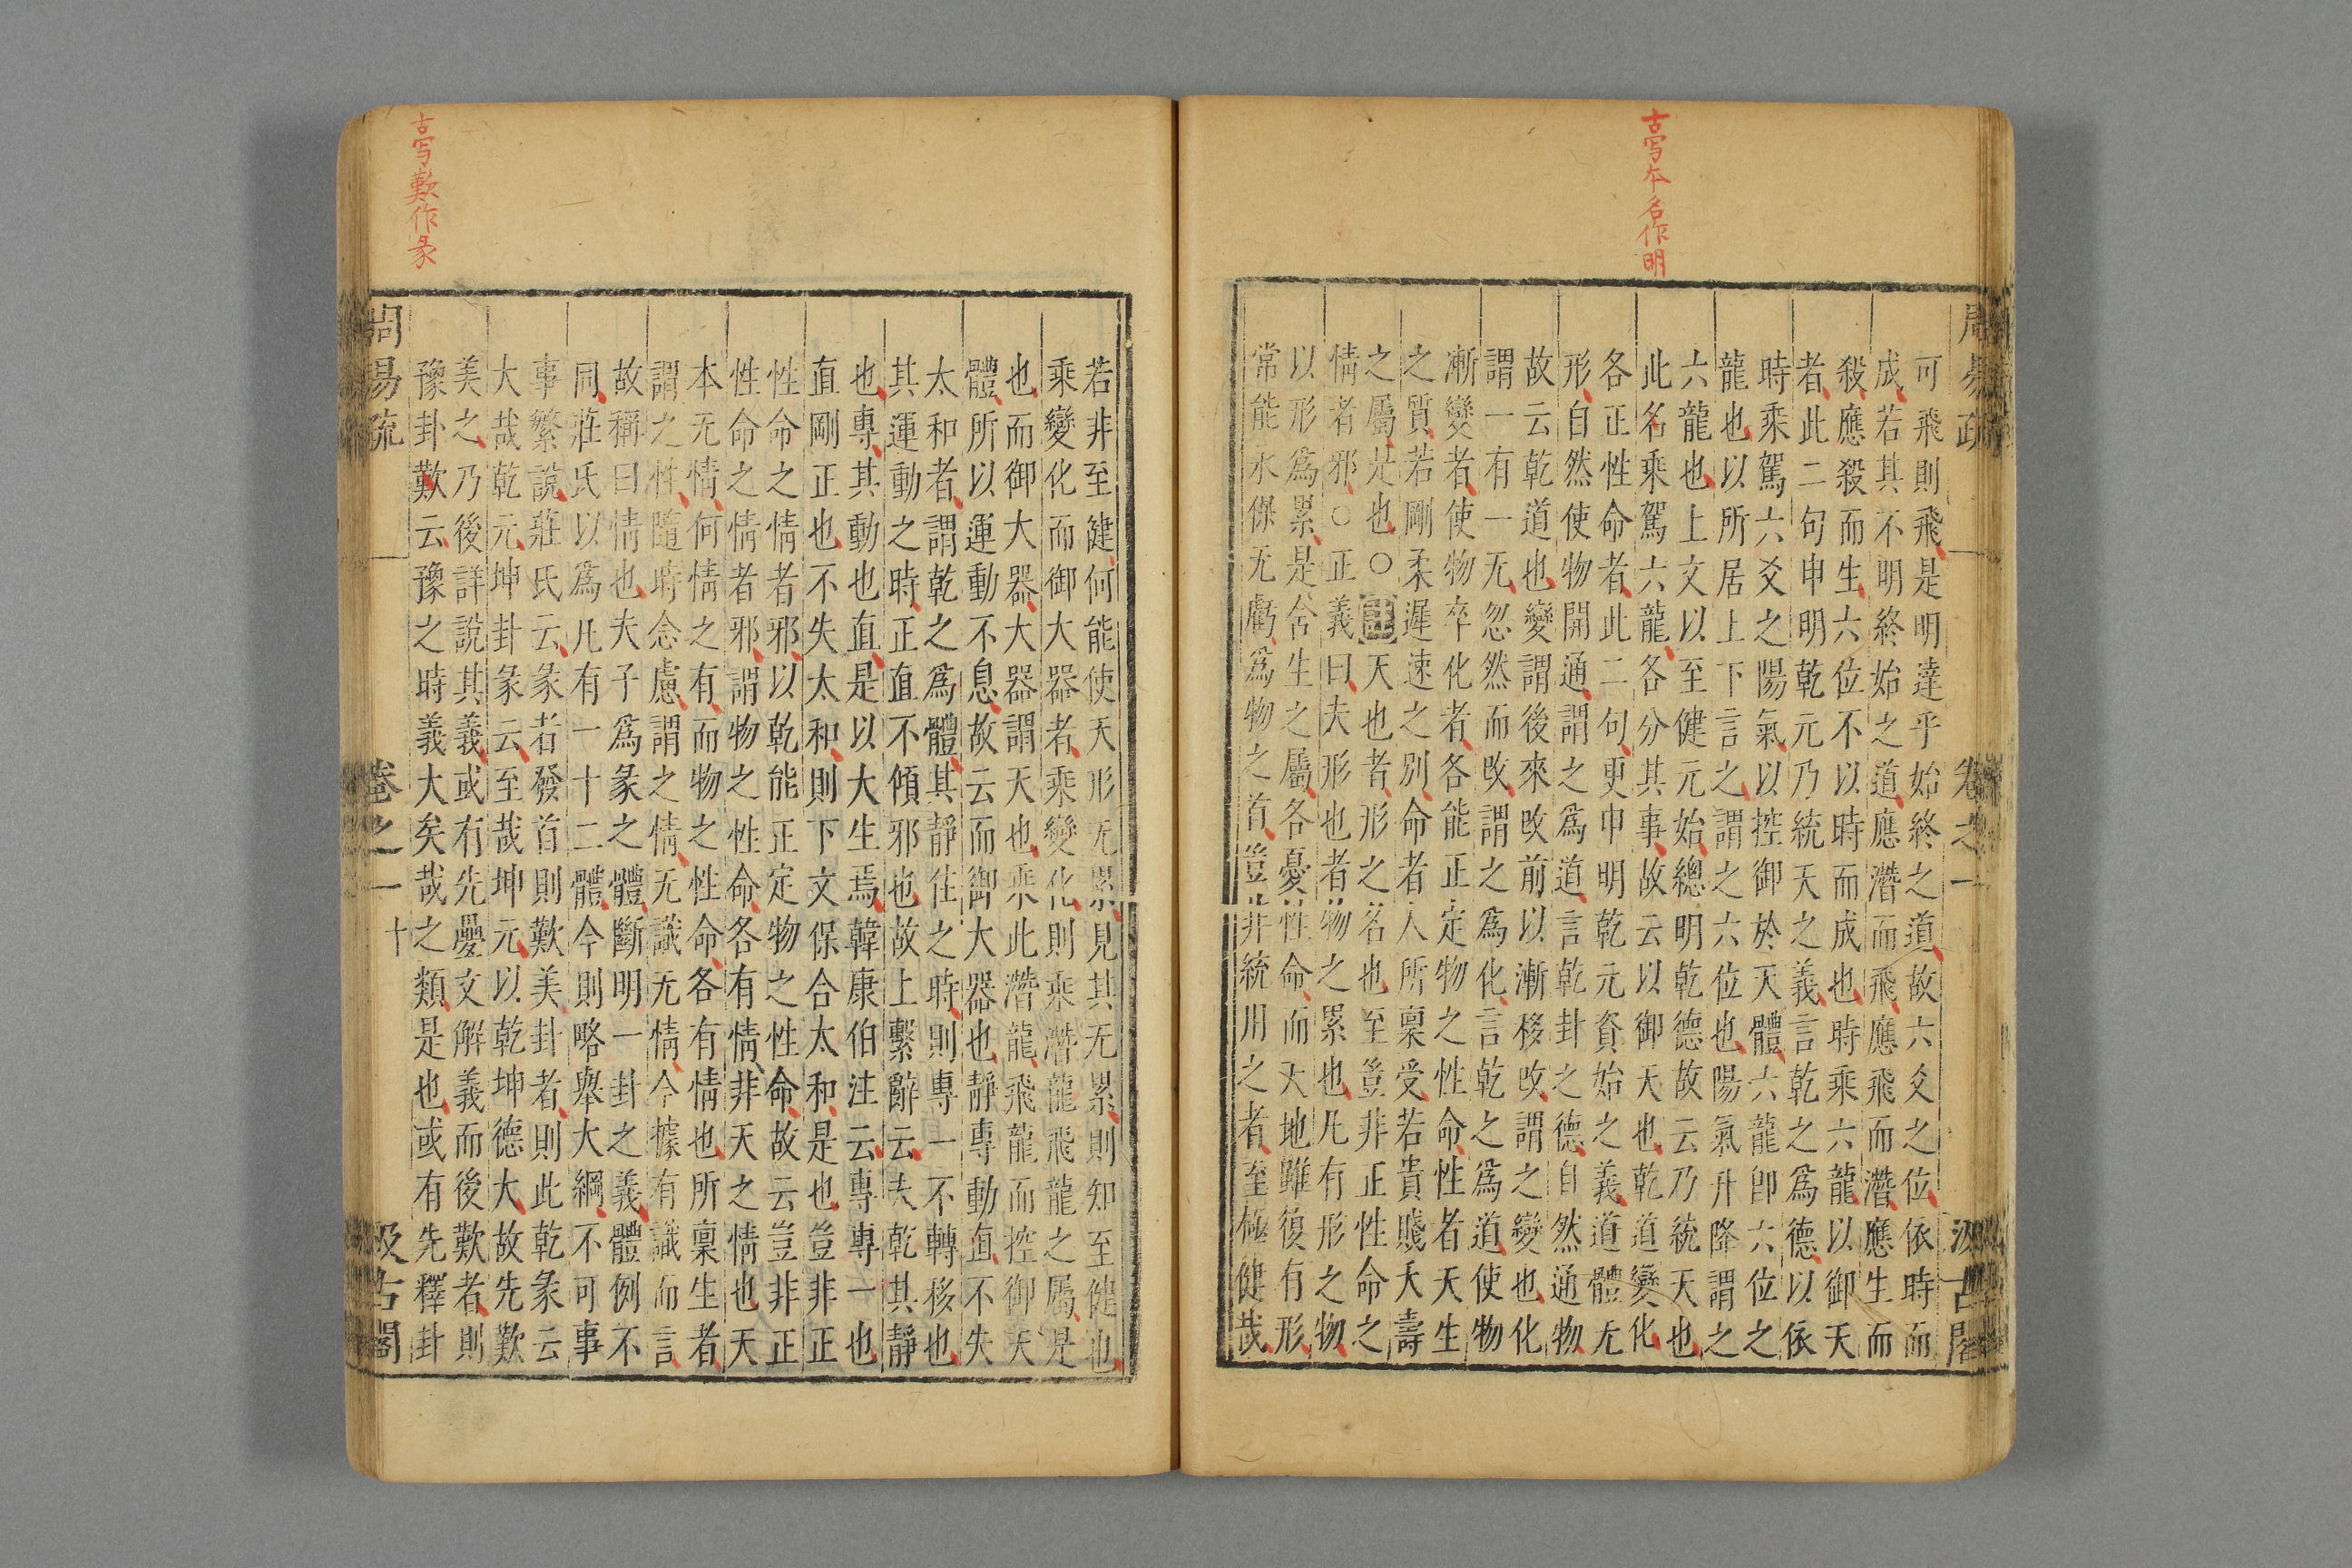 古写本名作明
周易疏
卷之一
汲古閣
可飛則飛是明達乎始終之道故六爻之位依時而
成若其不明終始之道應潛而飛應飛而潛應生而
殺應殺而生六位不以時而成也時乘六龍以御天
者此二句申明乾元乃統天之義言乾之為德以依
時乘駕六爻之陽氣以控御於天體六龍卽六位之
龍也以所居上下言之謂之六位也陽氣升降謂之
六龍也上文以至健元始總明乾德故云乃統天也
此名乘駕六龍各分其事故云以御天也乾道變化
各正性命者此二句更申明乾元資始之義道體无
形自然使物開通謂之為道言乾卦之德自然通物
故云乾道也變謂後來改前以漸移改謂之變也化
謂一有一无忽然而改謂之為化言乾之為道使物
漸變者使物卒化者各能正定物之性命性者天生
之質若剛柔遲速之別命者人所稟受若貴賤夭壽
之屬是也○註天也者形之名也至豈非正性命之
情者邪○正義曰夫形也者物之累也凡有形之物
以形為累是含生之屬各憂性命而天地雖復有形
常能永保无虧為物之首豈非統用之者至極健哉
若非至健何能使天形无累見其无累則知至健也
乘變化而御大器者乘變化則乘潛龍飛龍之屬是
也而御大器大器謂天也乘此潛龍飛龍而控御天
體所以運動不息故云而御大器也靜專動直不失
太和者謂乾之為體其靜住之時則專一不轉移也
其運動之時正直不傾邪也故上繫辭云夫乾其靜
也專其動也直是以大生焉韓康伯注云專專一也
直剛正也不失太和則下文保合太和是也豈非正
性命之情者邪以乾能正定物之性命故云豈非正
性命之情者邪謂物之性命各有情非天之情也天
本无情何情之有而物之性命各有情也所稟生者
謂之性隨時念慮謂之情无識无情今據有識而言
故稱曰情也夫子為彖之體斷明一卦之義體例不
同莊氏以為凡有一十二體今則略舉大綱不可事
事繁說莊氏云彖者發首則歎美卦者則此乾彖云
大哉乾元坤卦彖云至哉坤元以乾坤德大故先歎
美之乃後詳說其義或有先疊文解義而後歎者則
豫卦歎云豫之時義大矣哉之類是也或有先釋卦
古写歎作彖
周易疏
卷之一
十
汲古閣